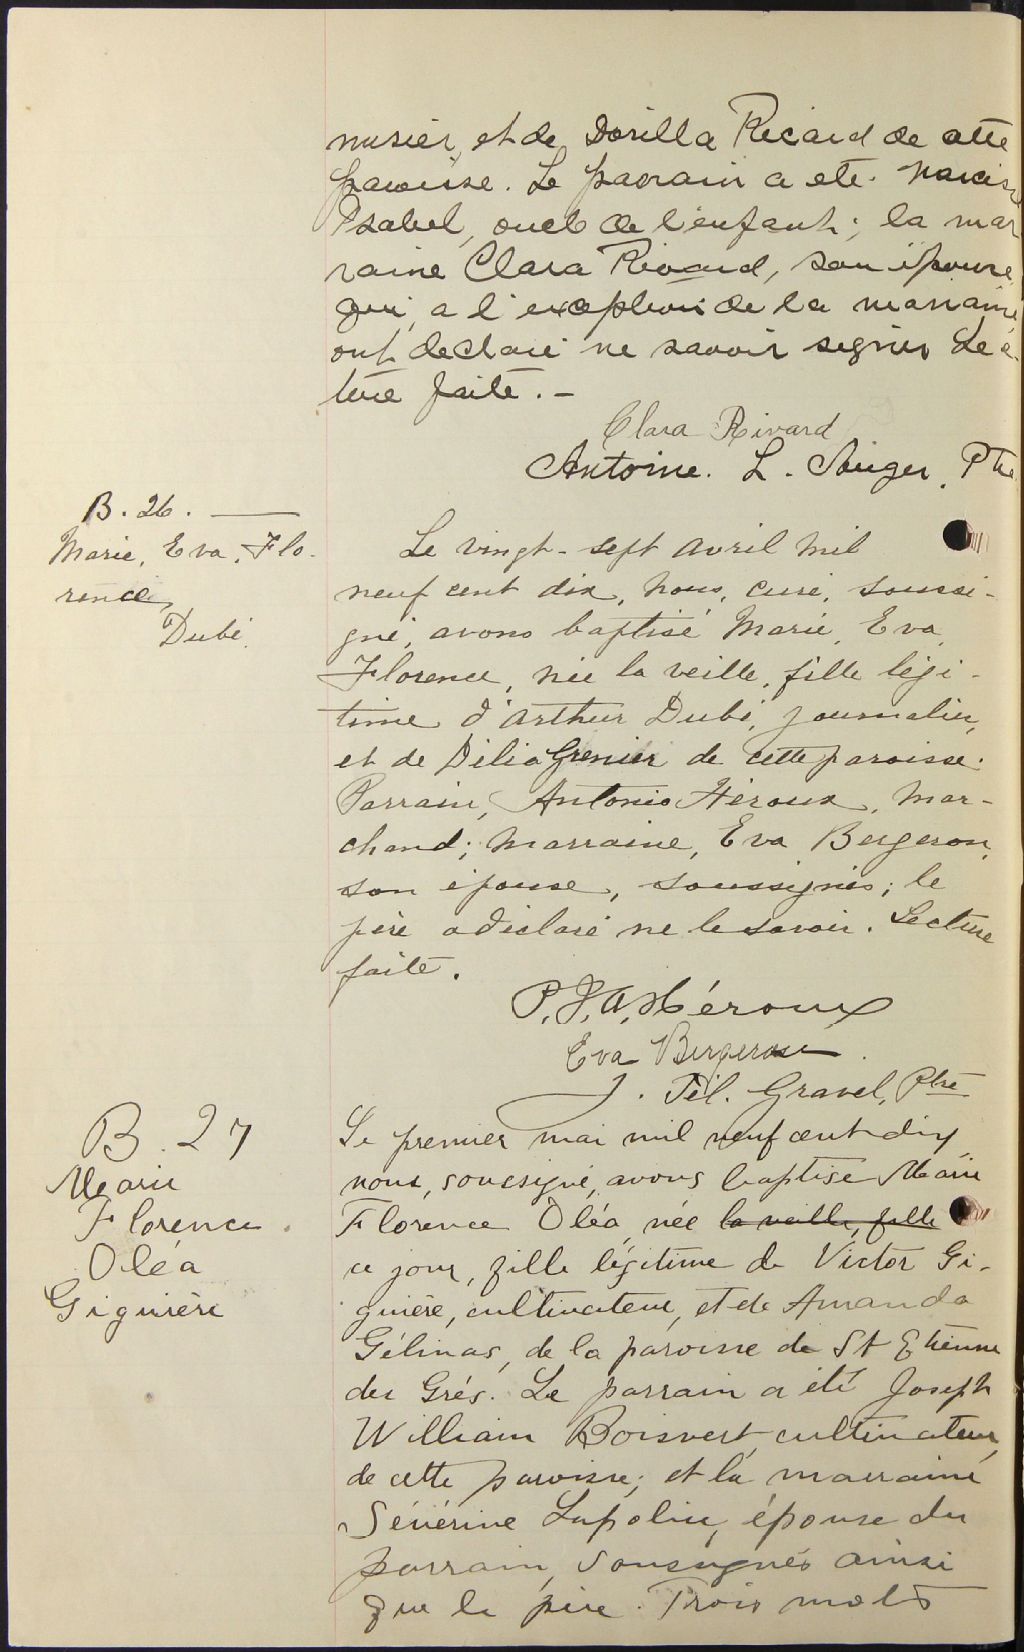 nusier, et de Dorilla Ricard de cette
paroisse. Le parrain a été Narcisse
Isabel, oncle de l'enfant; la mar
raine Clara Rivard, son épouse,
qui, a l'exception de la marraine,
ont declaré ne savoir signer Lec
ture faite. -
Clara Rivard
Antoine. L. Ptre
B. 26. —
Marie, Eva, Flo-
rence,
Dubé.
Le vingt-sept avril mil
neuf cent dix, nous, curé, soussi-
gné, avons baptisé Marie, Eva,
Florence, née la veille, fille légi-
time d'Arthur Dubé, journalier,
et de Délia Grenier de cette paroisse.
Parrain, Antonio Héroux, mar-
chand; marraine, Eva Bergeron,
son épouse, soussignés; le
père a déclaré ne le savoir. Lecture
faite.
P. J. A. Héroux
Eva Bergeron
J. Tél. Gravel, Ptre
B. 27
Marie
Florence
Oléa
Giguière
Le premier mai mil neuf cent dix
nous, soussigné, avons baptisé Marie
Florence Oléa, née la veille, fille
ce jour, fille légitime de Victor Gi-
guière, cultivateur, et de Amanda
Gélinas, de la paroisse de St Etienne
des Grés. Le parrain a été Joseph
William Boisvert, cultivateur,
de cette paroisse; et la marraine
Sévérine Lapolice, épouse du
parrain, soussignés ainsi
que le père. Trois mots